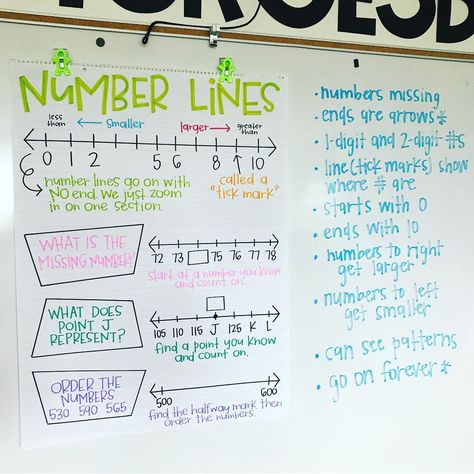 NUMBER LINES
less than
smaller
larger
greater than
0 1 2 5 6 8 10
number lines go on with
NO end. We just zoom
in on one section.
called a
"tick mark"
WHAT IS THE
MISSING NUMBER?
72 73 75 76 77 78
start at a number you know
and count on.
WHAT DOES
POINT J
REPRESENT?
105 110 115 J 125 K L
find a point you know
and count on.
ORDER THE
NUMBERS
530 590 565
500 600
find the halfway mark then
order the numbers.
• numbers missing
• ends are arrows*
• 1-digit and 2-digit #s
• line (tick marks) show
where # are
• starts with 0
• ends with 10
• numbers to right
get larger
• numbers to left
get smaller
• can see patterns
• go on forever*